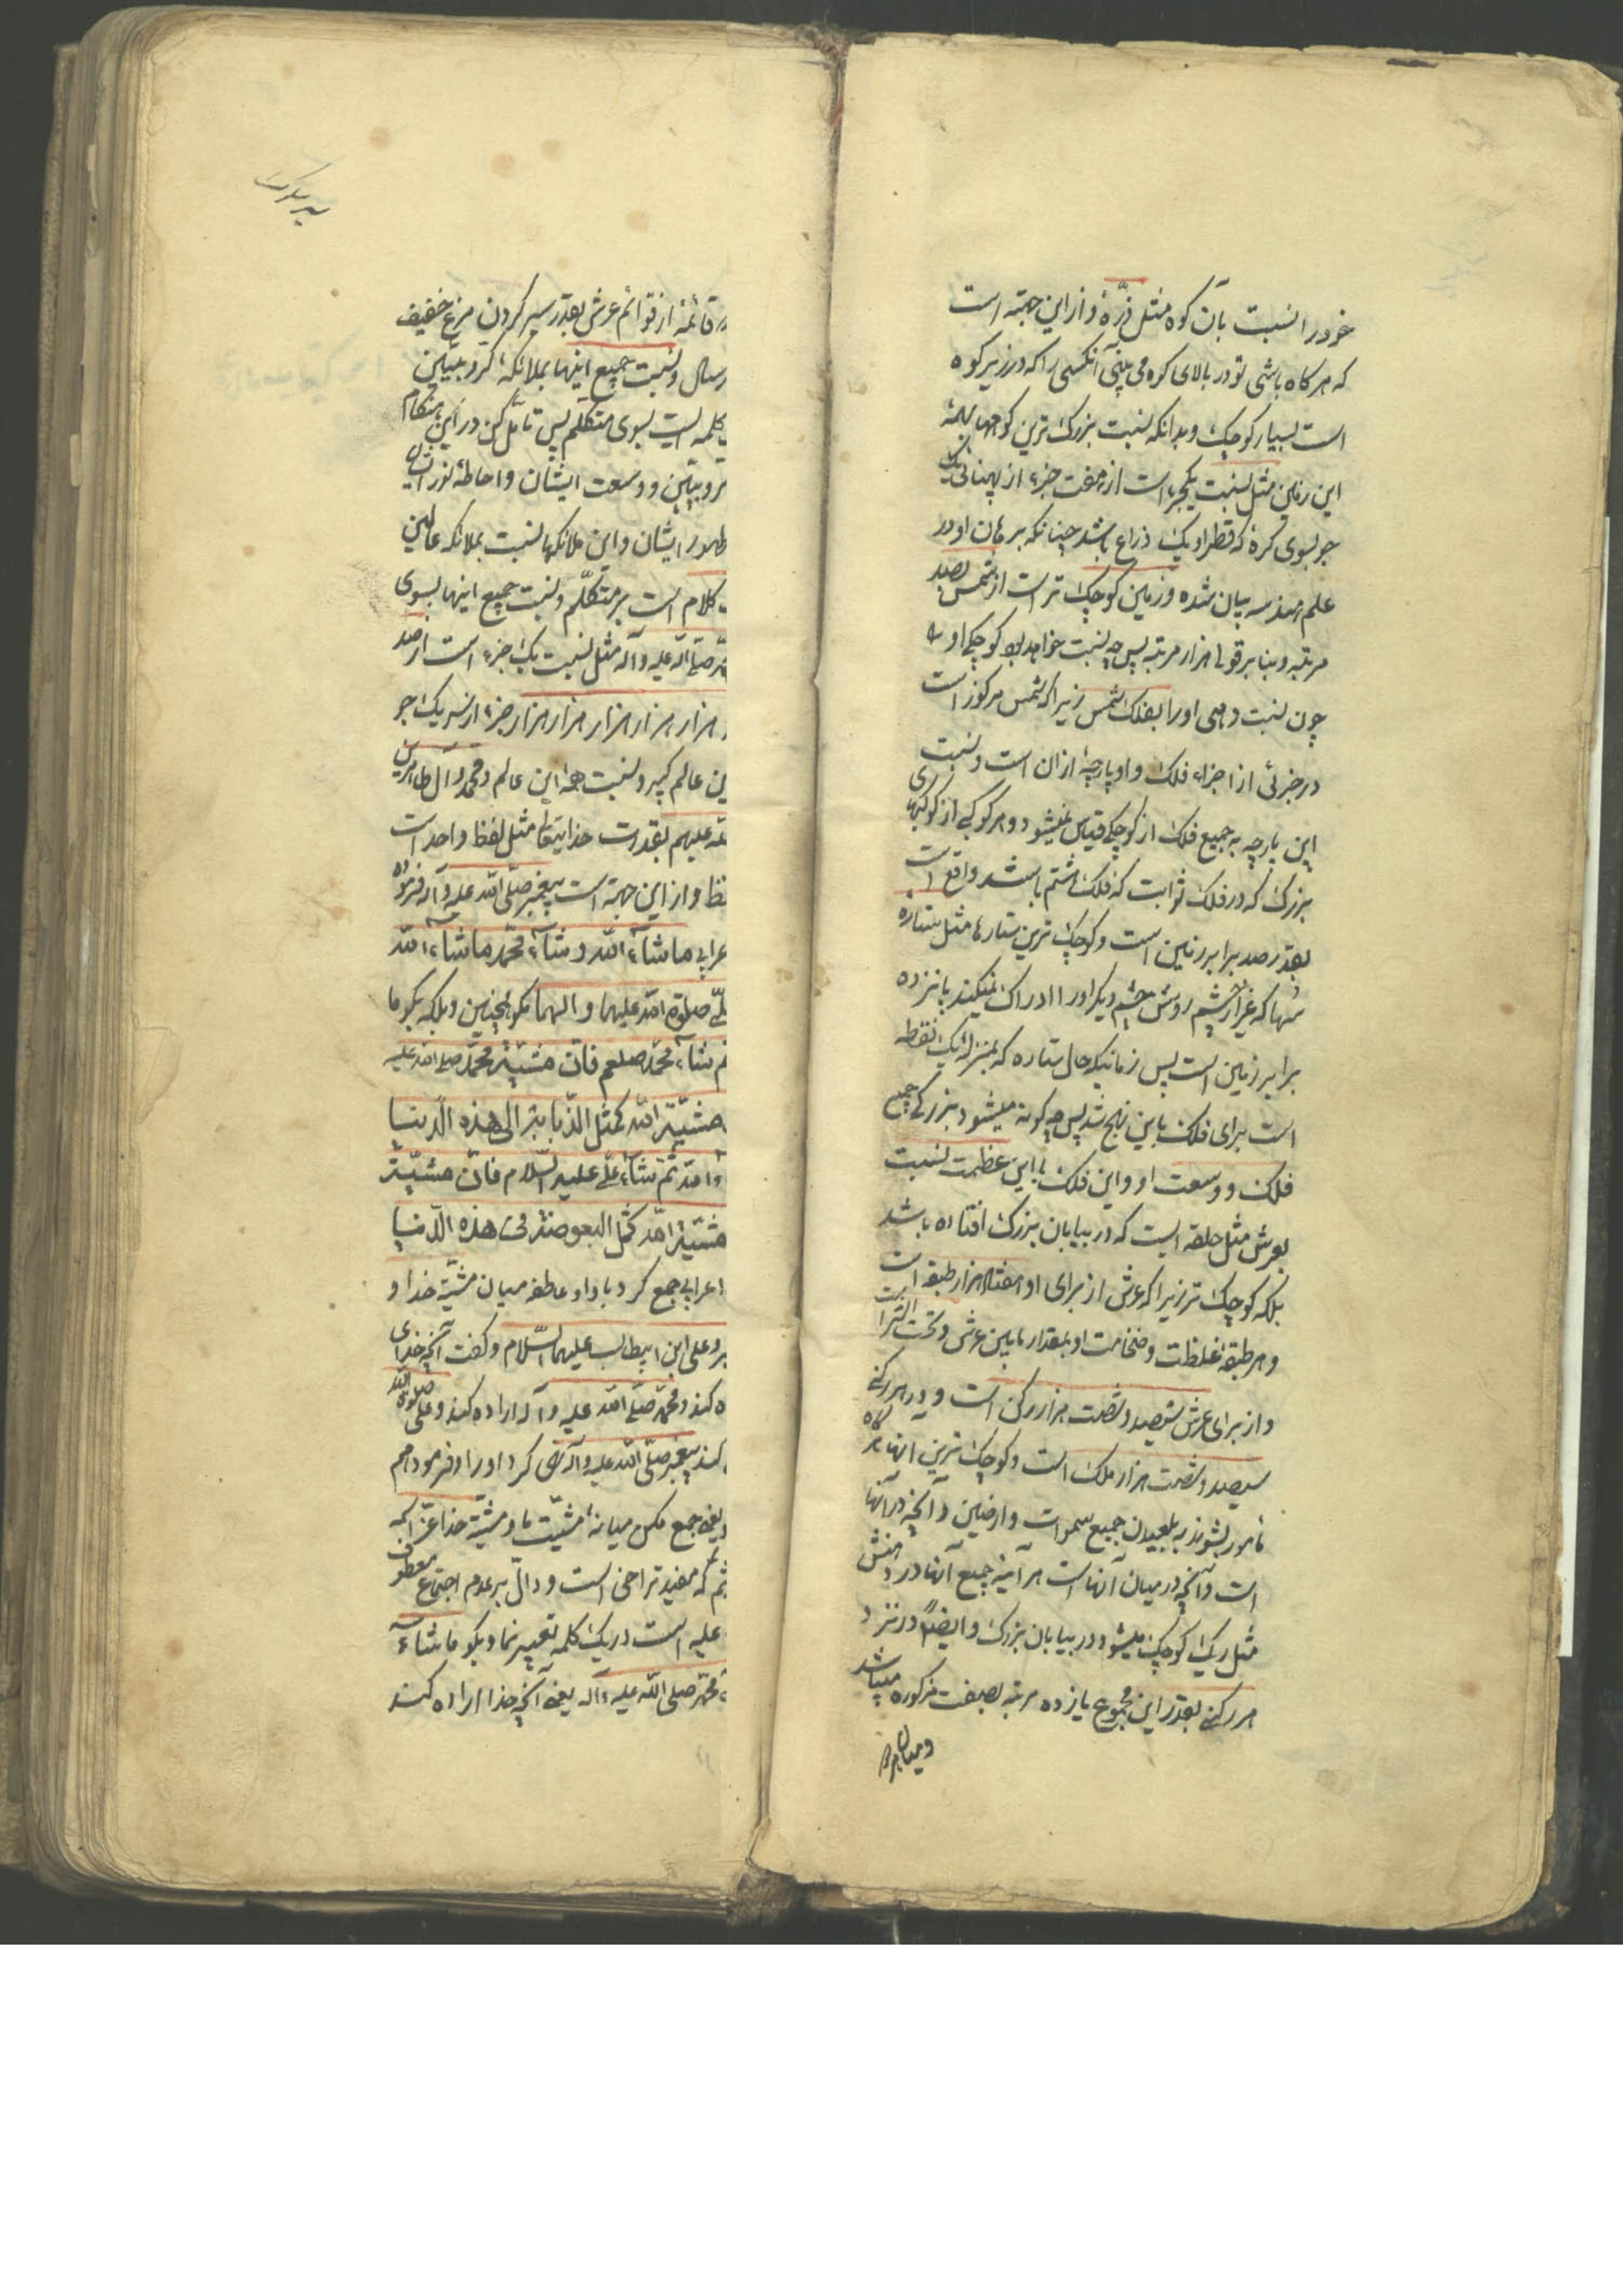 خود را نسبت بآن کوه مثل ذرّهٔ و از این جهة است
که هرکاه باشی تو در بالای کوه می بینی آنکسی را که در زیر کوه
است بسیار کوچک و بدانکه نسبت بزرک ترین کوهها بهمهٔ
این زمین مثل نسبت یکجزء است از هفت جزء از پهنائی یک
جو بسوی کرهٔ که قطر او یک ذراع باشد چنانکه برهان او در
علم هندسه بیان شده و زمین کوچک تر است از شمس بصد
مرتبه و بنا بر قولی هزار مرتبه پس چه نسبت خواهد بود کوچکی او
چون نسبت دهی او را بفلک شمس زیرا که شمس مرکوز است
در جزئی از اجزاء فلک و او پارچهٔ از ان است و نسبت
این پارچه به جمیع فلک از کوچکی قیاس نمیشود و هر کوکبی از کوکبهای
بزرک که در فلک ثوابت که فلک هشتم باشد واقع است
بقدر صد برابر زمین است و کوچک ترین ستارها مثل ستاره
سُها که غیر از چشم روشن چشم دیکر او را ادراک نمیکند پانزده
برابر زمین است پس زمانیکه حال ستاره که بمنزلهٔ یک نقطه
است برای فلک باین نهج شد پس چه کونه میشود بزرکی جمیع
فلک و وسعت او و این فلک با این عظمت نسبت
بعرش مثل حلقه ایست که در بیابان بزرک افتاده باشد
بلکه کوچک تر زیرا که عرش از برای او هفتاد هزار طبقه است
و هر طبقهٔ غلظت و ضخامت او بمقدار مابین عرش و تحت الثرا است
و از برای عرش سیصد و شصت هزار رکن است و در هر رکنی
سیصد و شصت هزار ملک است و کوچک ترین انها هرکاه
مأمور بشوند به بلعیدن جمیع سموات و ارضین و آنچه در آنها
است و آنچه در میان آنهاست هرآینه جمیع آنها در دهنش
مثل ریک کوچک میشود در بیابان بزرک و ایضاً در نزد
هر رکنی بقدر این مجموع یازده مرتبه بصفت مذکوره میباشد
و میان هر
قائمهٔ از قوائم عرش بقدر سیر کردن مرغ خفیف
سال و نسبت جمیع اینها بملائکهٔ کروبیّین
کلمه ایست بسوی متکلّم پس تأمّل کن در این هنکام
کروبیّین و وسعت ایشان و احاطهٔ نور ایشان
ظهور ایشان و این ملائکها نسبت بملائکه عالین
کلام است بر متکلّم و نسبت جمیع اینها بسوی
صلّی الله علیه و آله مثل نسبت یک جزء است از صد
هزار هزار هزار هزار هزار جزء از سر یک جو
عالم کبیر و نسبت همهٔ این عالم و محمّد و آل طاهرین
علیهم بقدرت خدایتعالی مثل لفظ واحد است
و از این جهة است پیغمبر صلّی الله علیه و آله فرموده
ما شآء الله و شآء محمّد ما شآء الله
صلوة الله علیهما و الهما مکو همچنین و بلکه بکو ما
شآء محمّد صلعم فانّ مشیّة محمّد صلی الله علیه
مشیّة الله کمثل الذّبابة الی هذه الدّنیا
ثمّ شآء علیّ علیه السّلام فانّ مشیّة
مشیّة الله کمثل البعوضة فی هذه الدّنیا
اعرابی جمع کرد باواو عاطفه میان مشیّة خدا و
و علی ابن ابیطالب علیهما السّلام و کفت آنچه خدای
کند و محمّد صلّی الله علیه و آله اراده کند و علی صلوة الله
کند پیغمبر صلّی الله علیه و آله نهی کرد او را و فرمود
یعنی جمع مکن میانهٔ مشیّت ما و مشیّة خدا عزّ
ثم که مفید تراخی است و دالّ بر عدم اجتماع معطوف
علیه است در یک کلمه تعبیر نما و بکو ما شآء
محمّد صلی الله علیه و آله یعنی آنچه خدا اراده کند